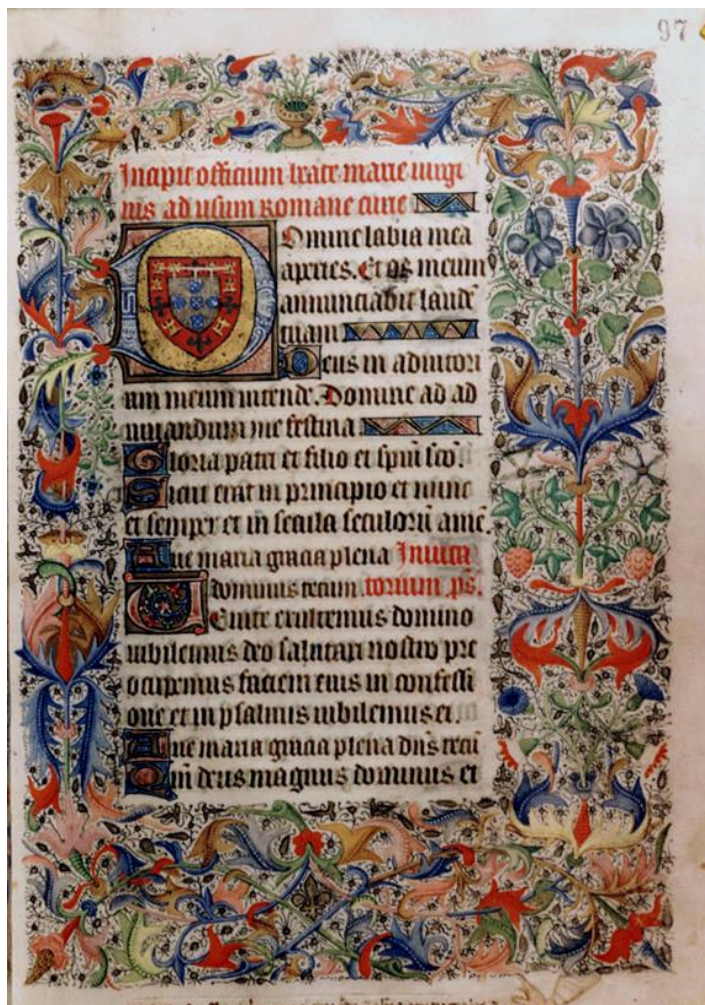 97
Incipit officium beate marie virgi
nis ad usum Romane curie
Domine labia mea
aperies. Et os meum
annunciabit laudē
tuam
Deus in adiutori
um meum intende. Domine ad ad
iuuandum me festina
Gloria patri et filio et spiritui scō.
Sicut erat in principio et nunc
et semper et in secula seculorū amē.
Aue maria gracia plena Inuita
dominus tecum. torium. ps.
Uenite exultemus domino
iubilemus deo salutari nostro pre
ocupemus faciem eius in confessi
one et in psalmis iubilemus ei.
Aue maria gracia plena dn̄s tecū
Qm̄ deus magnus dominus et